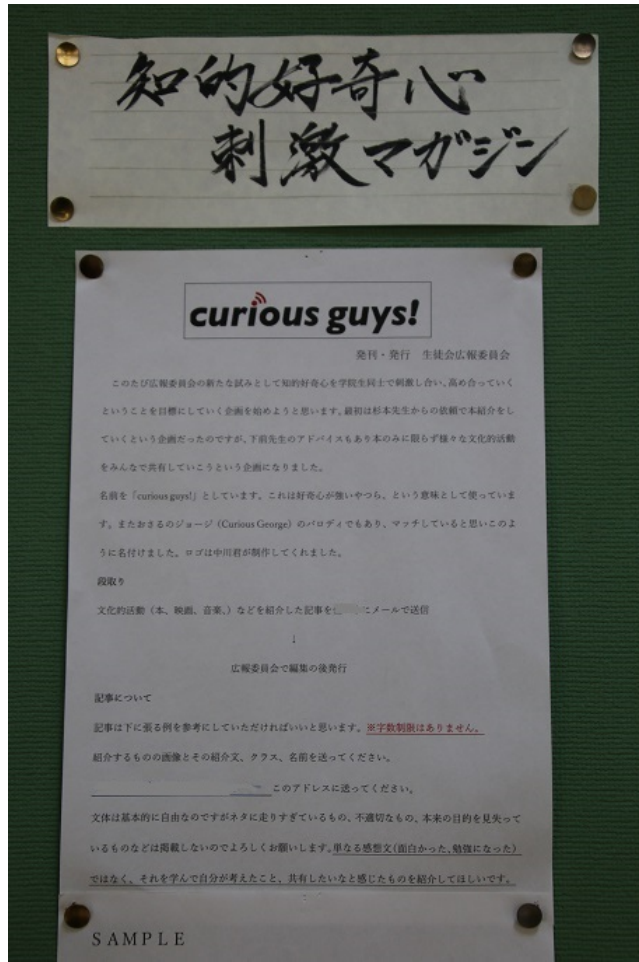 知的好奇心
刺激マガジン
curious guys!
発刊・発行　生徒会広報委員会
このたび広報委員会の新たな試みとして知的好奇心を学院生同士で刺激し合い、高め合っていく
ということを目標にしていく企画を始めようと思います。最初は杉本先生からの依頼で本紹介をし
ていくという企画だったのですが、下前先生のアドバイスもあり本のみに限らず様々な文化的活動
をみんなで共有していこうという企画になりました。
名前を「curious guys!」としています。これは好奇心が強いやつら、という意味として使っていま
す。またおさるのジョージ（Curious George）のパロディでもあり、マッチしていると思いこのよ
うに名付けました。ロゴは中川君が制作してくれました。
段取り
文化的活動（本、映画、音楽、）などを紹介した記事を にメールで送信
↓
広報委員会で編集の後発行
記事について
記事は下に張る例を参考にしていただければいいと思います。※字数制限はありません。
紹介するものの画像とその紹介文、クラス、名前を送ってください。
このアドレスに送ってください。
文体は基本的に自由なのですがネタに走りすぎているもの、不適切なもの、本来の目的を見失って
いるものなどは掲載しないのでよろしくお願いします。単なる感想文（面白かった、勉強になった）
ではなく、それを学んで自分が考えたこと、共有したいなと感じたものを紹介してほしいです。
SAMPLE